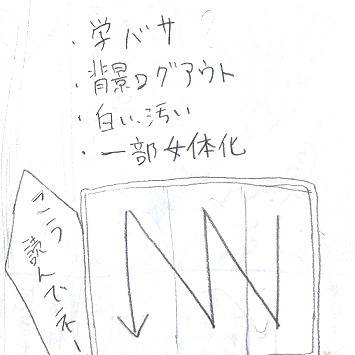 ・学バサ
・背景ログアウト
・白い、汚い
・一部女体化
こう
読んでネー